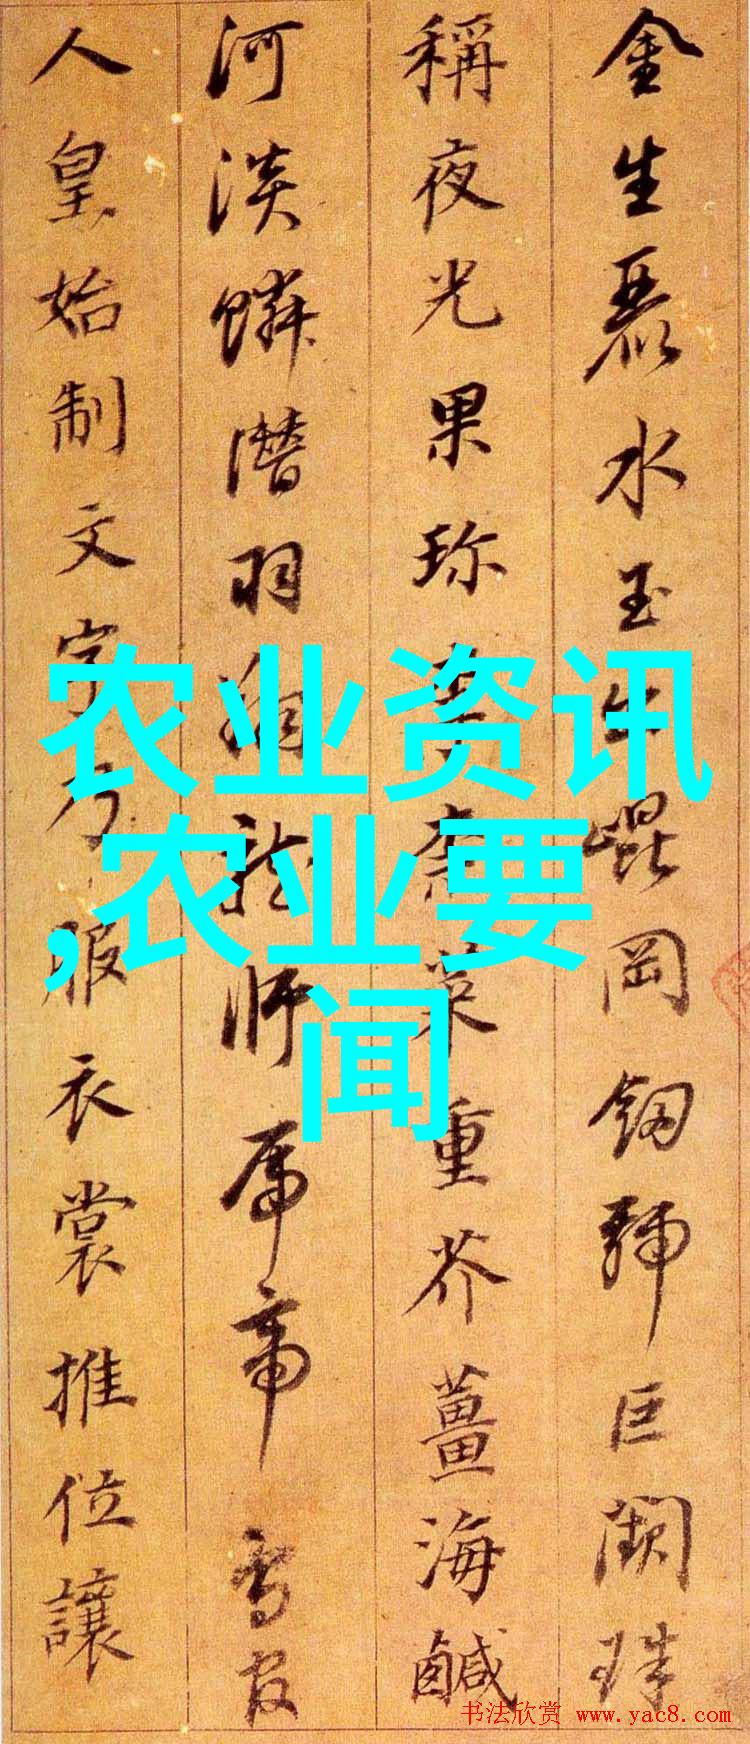 金生麗水玉出崐岡釼號巨闕珠
稱夜光果珎李柰菜重芥薑海鹹
河淡鱗潛羽翔龍師帝鳥官
人皇始制文字乃服衣裳推位讓
农业资讯
,农业要
闻
书法欣赏 www.yac8.com